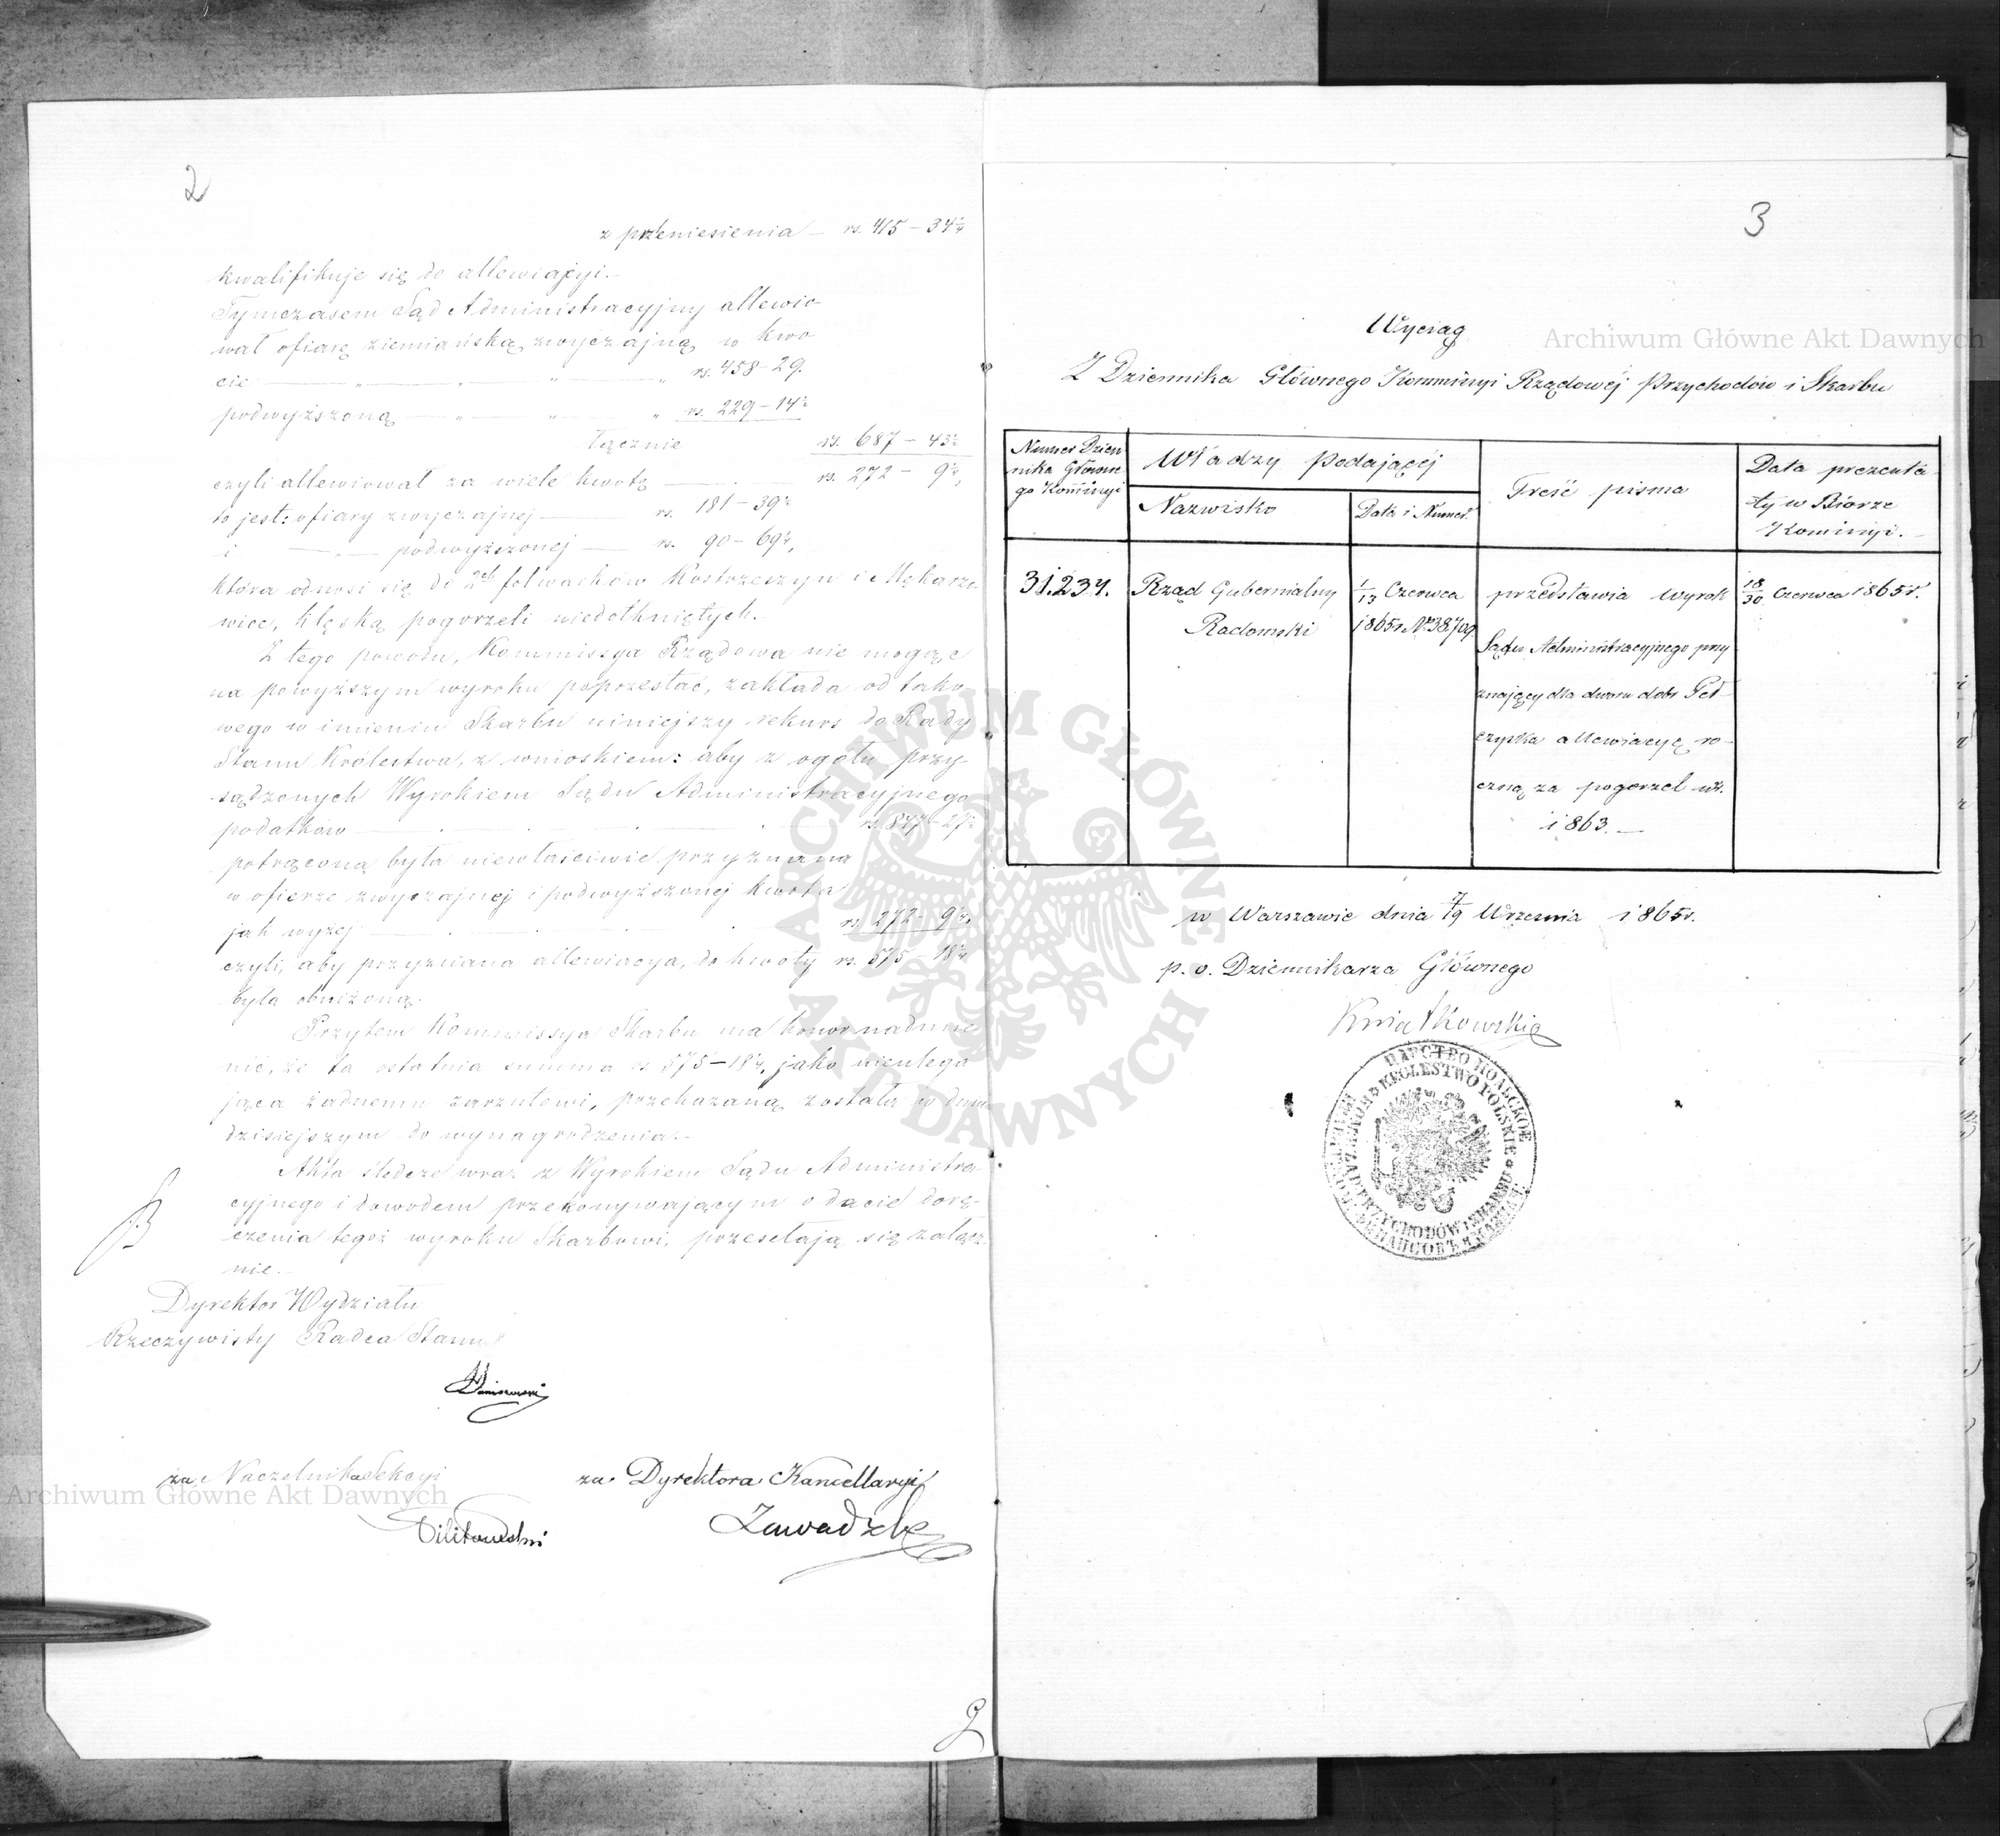 2
z przeniesienia — rs. 415 – 34½
kwalifikuje się do allewiacyi. –
Tymczasem Sąd Administracyjny allewio-
wał ofiarę ziemiańską zwyczajną w kwo
cie — „ — „ — „ — „ rs. 458 – 29.
podwyższoną — „ — „ „ rs. 229 – 14½
łącznie rs. 687 – 43½
czyli allewiował za wiele kwotę — rs. 272 – 9½,
to jest: ofiary zwyczajnej — rs. 181 – 39½
i — „ — podwyższonej — rs. 90 – 69½,
która odnosi się do 2ch folwarków Kostrzeszyn i Mękarzo
wice, klęską pogorzeli niedotkniętych. –
Z tego powodu, Kommissya Rządowa nie mogąc
na powyższym wyroku poprzestać, zakłada od tako
wego w imieniu Skarbu niniejszy rekurs do Rady
Stanu Królestwa, z wnioskiem: aby z ogółu przy-
sądzonych Wyrokiem Sądu Administracyjnego
podatków — rs. 847 – 27½
potrąconą była niewłaściwie przyznana
w ofierze zwyczajnej i podwyższonej kwota
jak wyżej — rs. 272 – 9½,
czyli, aby przyznana allewiacya, do kwoty rs. 575 – 18½
była obniżoną.
Przytem Kommissya Skarbu ma honor nadmie
nić, że ta ostatnia summa rs. 575 – 18½, jako nieulega
jąca żadnemu zarzutowi, przekazaną została w dniu
dzisiejszym do wynagrodzenia. –
Akta śledcze wraz z Wyrokiem Sądu Administra-
cyjnego i dowodem przekonywającym o dacie dorę-
czenia tegoż wyroku Skarbowi, przesełają się załącz-
nie. –
Dyrektor Wydziału
Rzeczywisty Radca Stanu
za Naczelnika Sekcyi
za Dyrektora Kancellaryi
Zawadzki
2
3
Wyciąg
Z Dziennika Głównego Kommissyi Rządowéj Przychodów i Skarbu
Numer Dzien
nika Główne
go Kommissyi
Władzy podającéj
Nazwisko
Data i Numer
Treść pisma
Data prezenta-
ty w Biórze
Kommissyi. –
31.234.
Rząd Gubernialny
Radomski
1/13 Czerwca
1865r. No 38709.
przedstawia wyrok
Sądu Administracyjnego przy
znający dla dworu dobr Peł-
czyska allewiacyę ro-
czną za pogorzel w r.
1863. —
18/30 Czerwca 1865r.
w Warszawie dnia 7/19 Września 1865r.
p. o. Dziennikarza Głównego
Kwiatkowski
ЦАРСТВО ПОЛЬСКОЕ
KRÓLESTWO POLSKIE
KOM. RZĄD. PRZYCHODÓW I SKARBU
ARCHIWUM GŁÓWNE AKT DAWNYCH
Archiwum Główne Akt Dawnych
Archiwum Główne Akt Dawnych